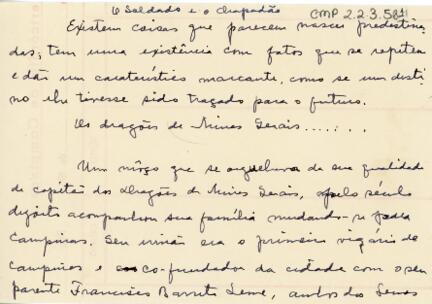 O Soldado e o Chapadão
CMP 2.2.3.581
Existem coisas que parecem nascer predestina
das; tem uma existência com fatos que se repetem
e dão um caraterístico marcante, como se um desti
no lhe tivesse sido traçado para o futuro.
Os dragões de Minas Gerais......
Um môço que se orgulhava de sua qualidade
de capitão dos Dragões de Minas Gerais, pelo século
dezoito acompanhou sua família mudando-se para
Campinas. Seu irmão era o primeiro vigário de
Campinas e co-fundador da cidade com o seu
parente Francisco Barreto Leme, ambos dos Lemes